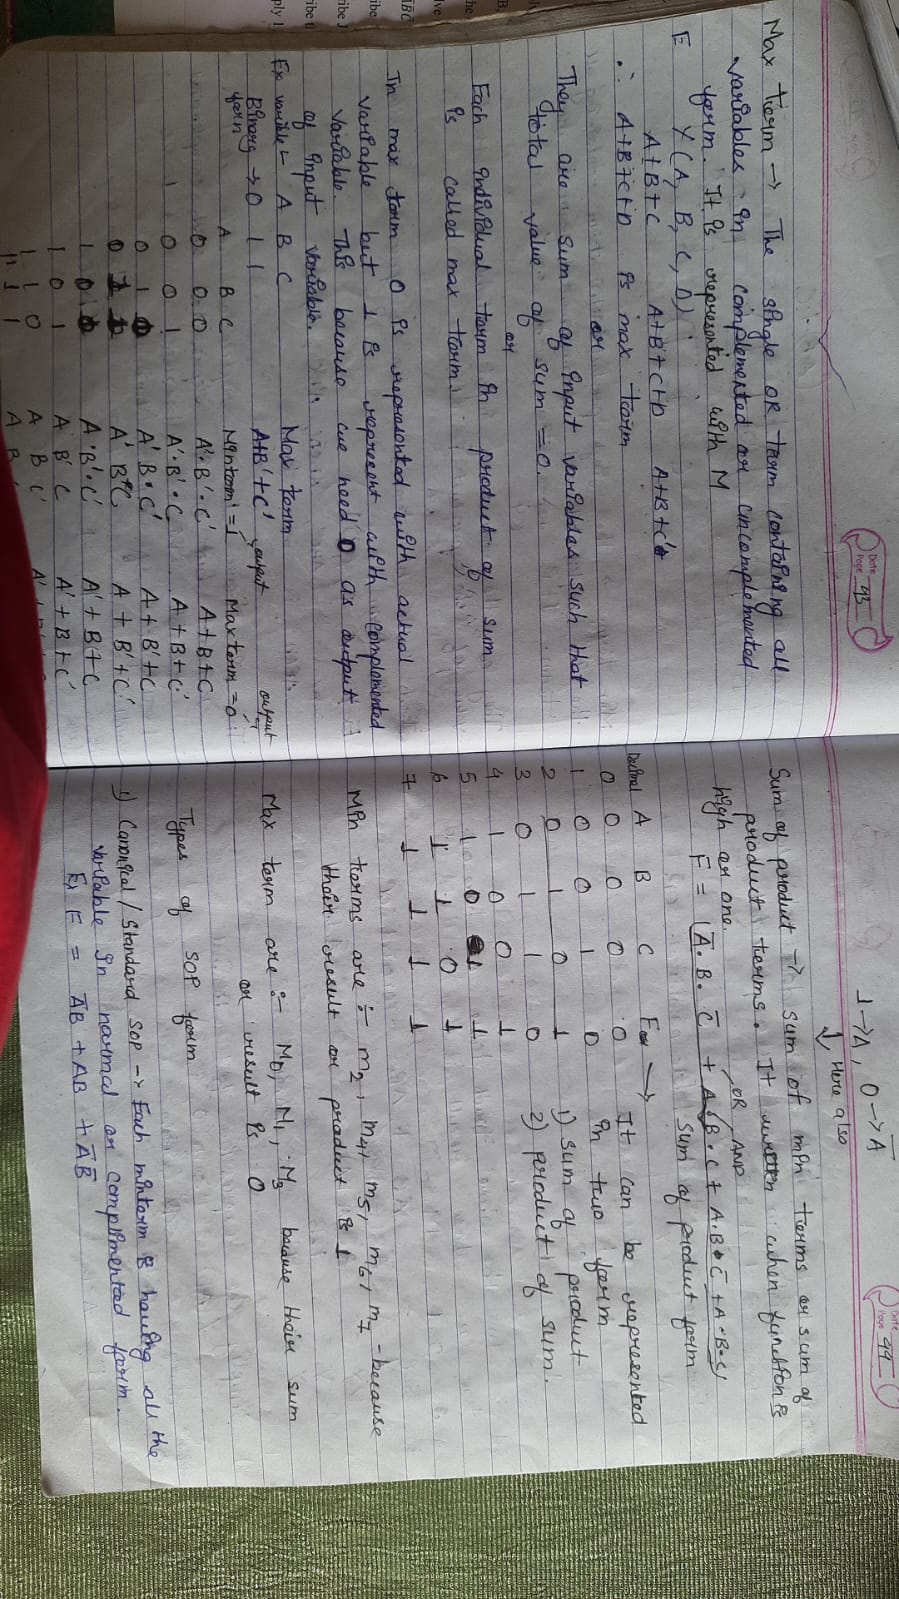 Date
Page 93
Max term → The single OR term containing all
variables in complemented or uncomplemented
form. It is represented with M
E Y (A, B, C, D)
A+B+C A+B+C+D A+B+C'
∴ A+B+C+D is max term
or
They are sum of input variables such that
total value of sum = 0.
or
Each individual term in product of sum
is called max term.
In max term 0 is represented with actual
variable but 1 is represent with complemented
variable. This because we need 0 as output
of input variable.
Ex variable A B C Max term
Binary → 0 1 1 A+B'+C' output output
form
A B C Minterm = 1 Max term = 0
0 0 0 A'·B'·C' A+B+C
0 0 1 A'·B'·C A+B+C'
0 1 0 A' B·C' A+B'+C
0 1 1 A' B·C A + B'+C'
1 0 0 A·B'·C' A'+B+C
1 0 1 A B' C A'+B+C'
1 1 0 A B C'
1 1 1 A B
Date
Page 94
1→A, 0→A̅
↓ Here also
Sum of product → sum of min terms or sum of
product terms. It written when function is
high or one.
OR AND
F = (A̅·B·C̅ + A·B·C + A·B·C̅ + A·B·C)
sum of product form
Decimal A B C F →
0 0 0 0 0 It can be represented
1 0 0 1 0 in two form
2 0 1 0 1 1) sum of product
3 0 1 1 0 2) product of sum.
4 1 0 0 1
5 1 0 1 1
6 1 1 0 1
7 1 1 1 1
Min terms are :- m2, m4, m5, m6, m7 - because
their result or product is 1
Max term are :- M0, M1, M3 because their sum
or result is 0
Types of SOP form
1) Canonical / Standard SOP → Each minterm is having all the
variable in normal or complimented form.
Ex F = A̅B + AB + A̅B̅
ABC
ribe J
ply 1